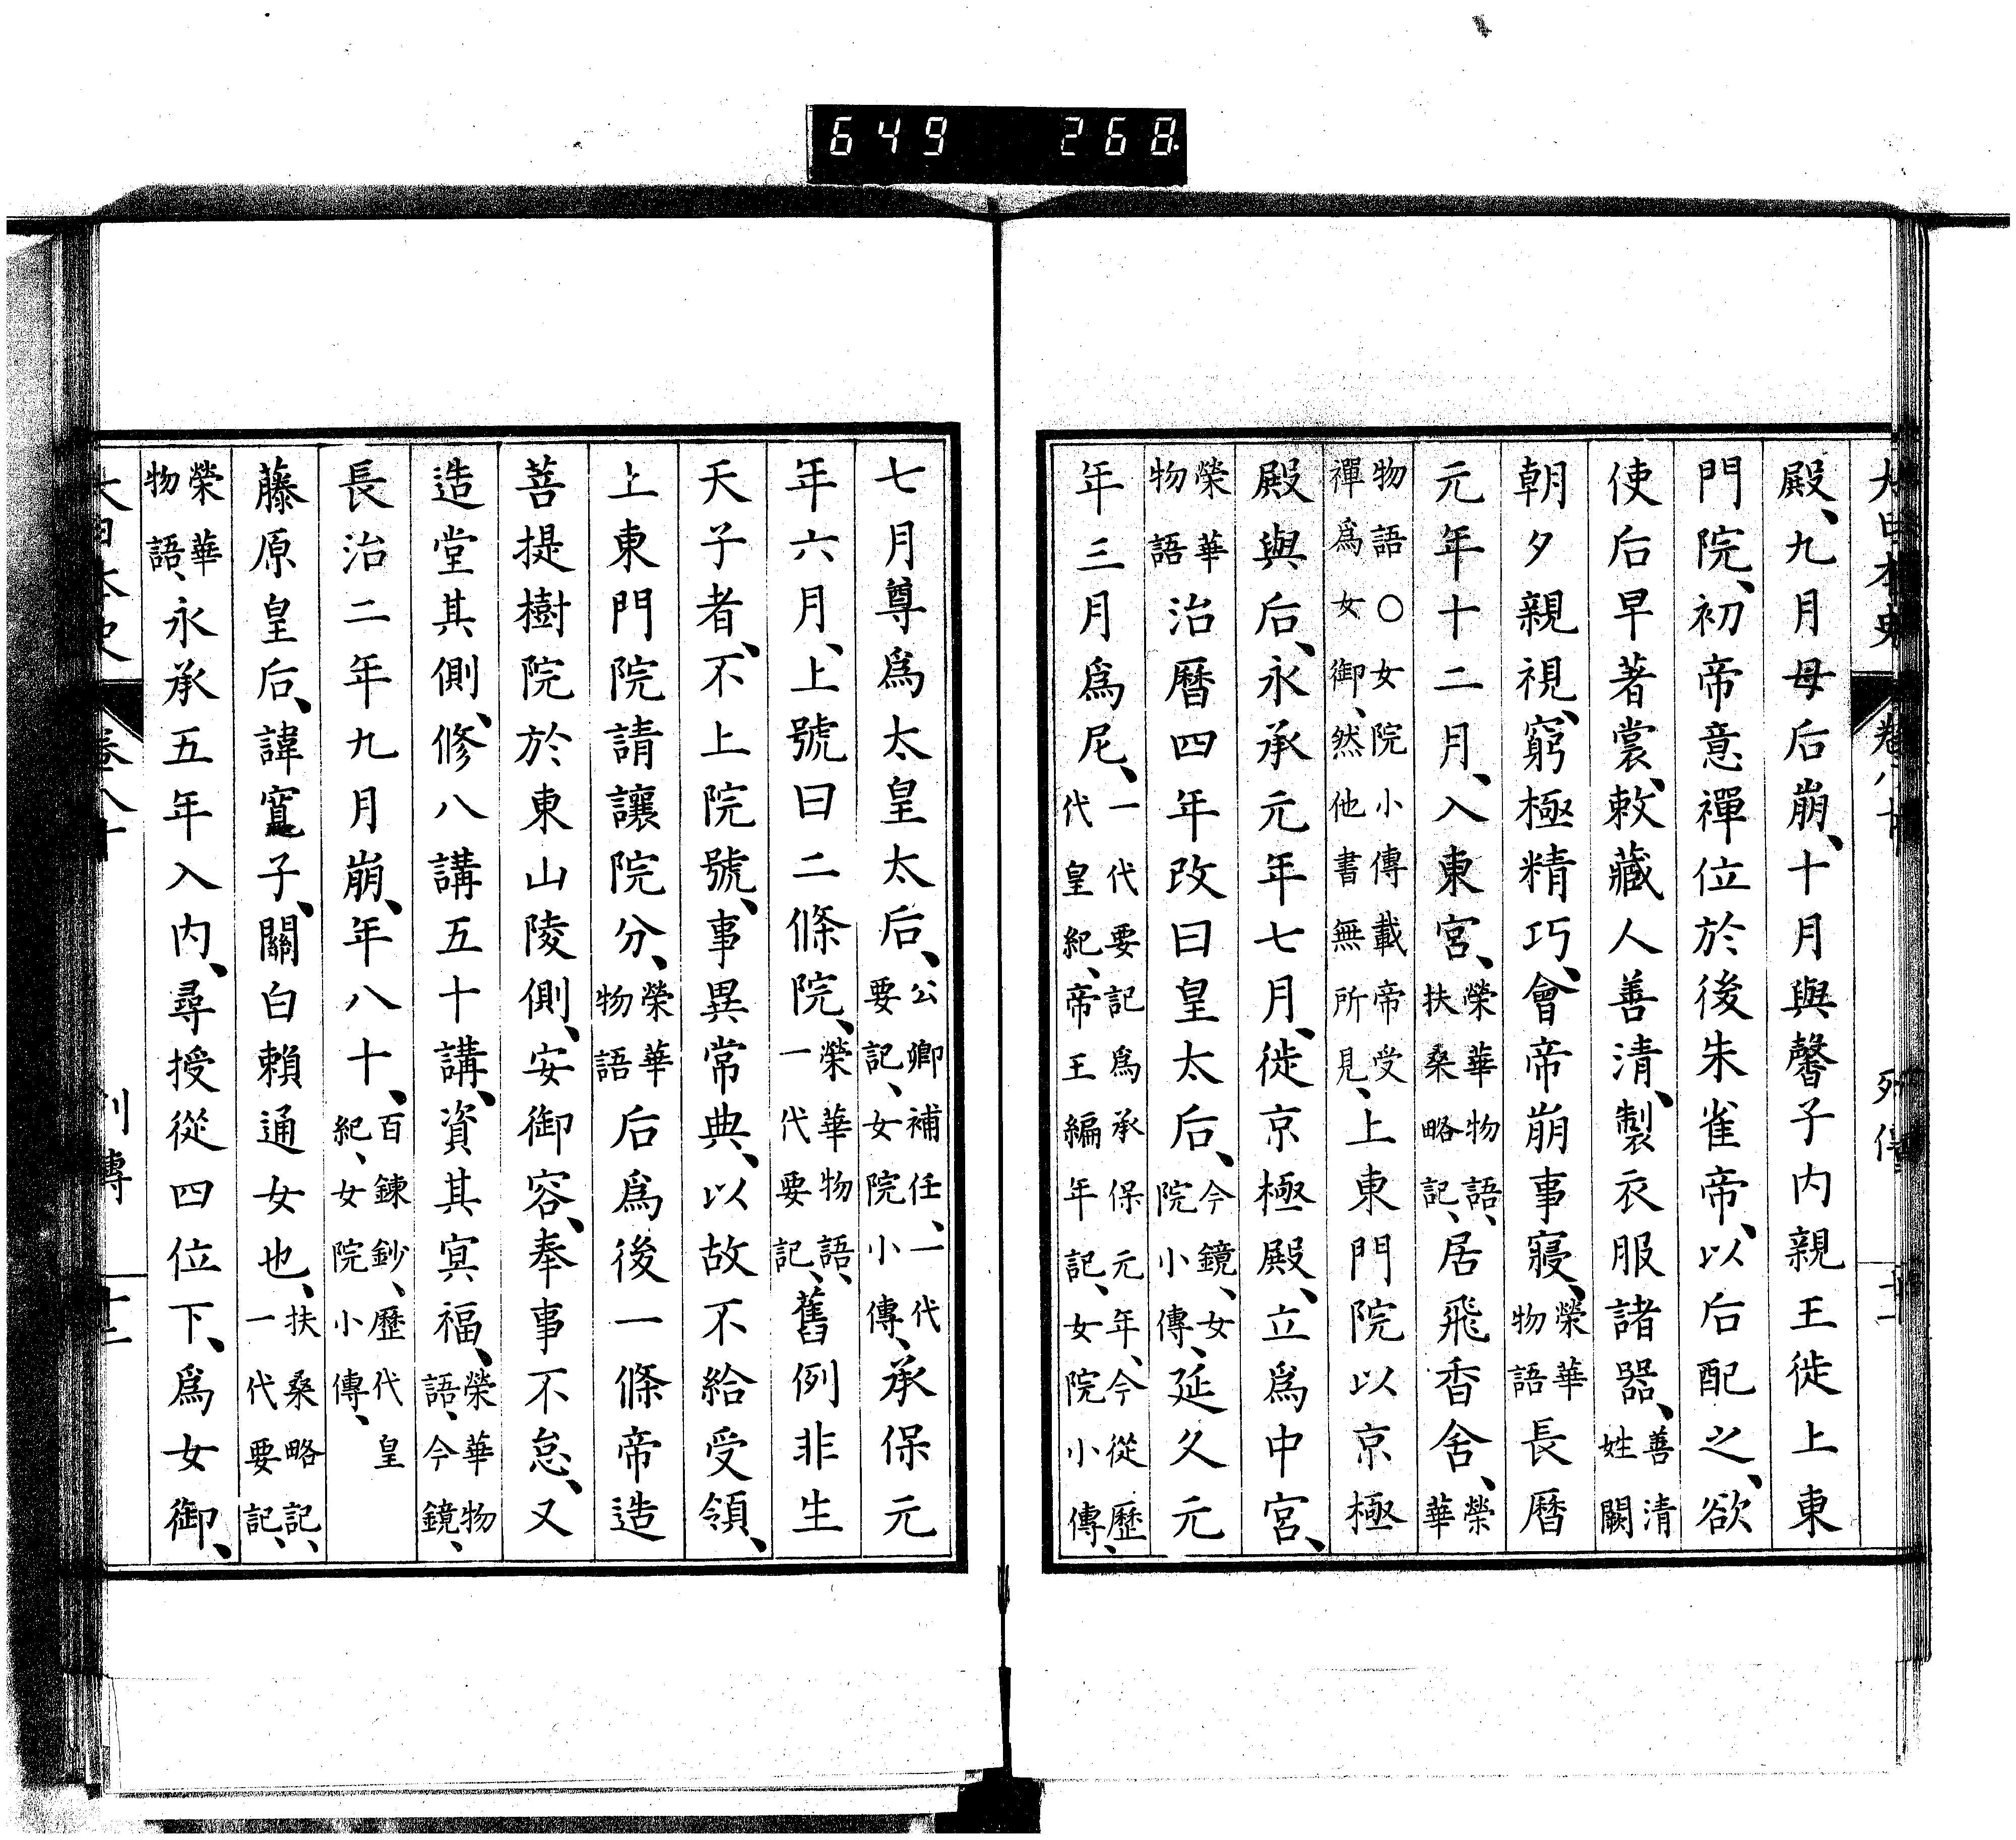 649 268.
大日本史 卷八十 列傳 十一
殿、九月母后崩、十月與馨子内親王徙上東
門院、初帝意禪位於後朱雀帝、以后配之、欲
使后早著裳、敕藏人善清、製衣服諸器、善清姓闕
朝夕親視、窮極精巧、會帝崩事寢、榮華物語長曆
元年十二月、入東宮、榮華物語、扶桑略記、居飛香舍、榮華
物語○女院小傳載帝受禪爲女御、然他書無所見、上東門院以京極
殿與后、永承元年七月、徙京極殿、立爲中宮、
榮華物語治曆四年改曰皇太后、今鏡、女院小傳、延久元
年三月爲尼、一代要記爲承保元年、今從歷代皇紀、帝王編年記、女院小傳、
七月尊爲太皇太后、公卿補任、一代要記、女院小傳、承保元
年六月、上號曰二條院、榮華物語、一代要記、舊例非生
天子者、不上院號、事異常典、以故不給受領、
上東門院請讓院分、榮華物語后爲後一條帝造
菩提樹院於東山陵側、安御容、奉事不怠、又
造堂其側、修八講五十講、資其冥福、榮華物語、今鏡、
長治二年九月崩、年八十、百鍊鈔、歷代皇紀、女院小傳、
藤原皇后、諱寬子、關白賴通女也、扶桑略記、一代要記、
榮華物語、永承五年入内、尋授從四位下、爲女御、
大日本史 卷八十 列傳 十二